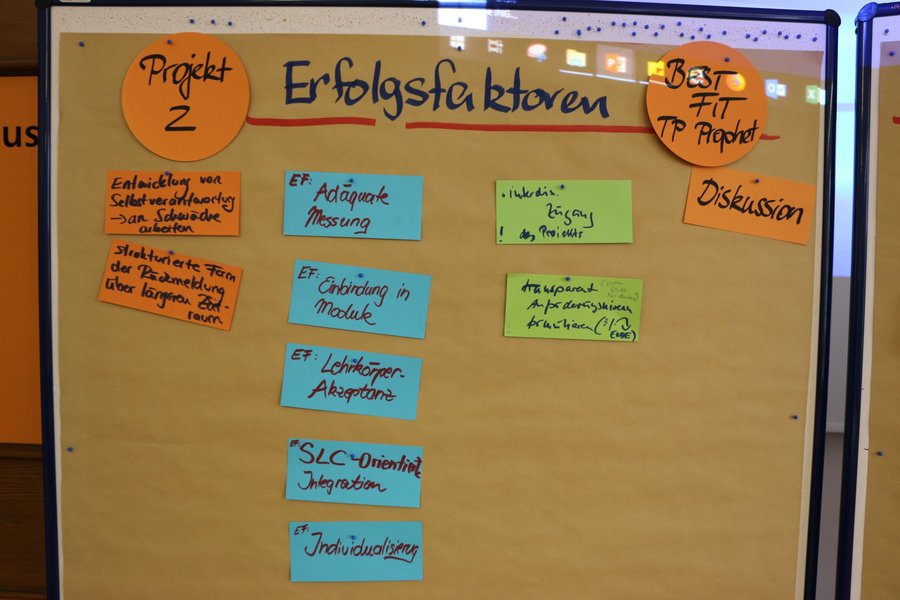 us
Projekt
2
Erfolgsfaktoren
BEST
FiT
TP Prophet
Diskussion
Entwicklung von
Selbstverantwortung
→ an Schwäche
arbeiten
strukturierte Form
der Rückmeldung
über längeren Zeit-
raum
EF:
Adäquate
Messung
EF:
Einbindung in
Module
EF: Lehrkörper-
Akzeptanz
EF: SLC-Orientierte
Integration
EF:
Individualisierung
. interdis.
Zugang
! des Projekts
transparent
formulieren (
ENDE)